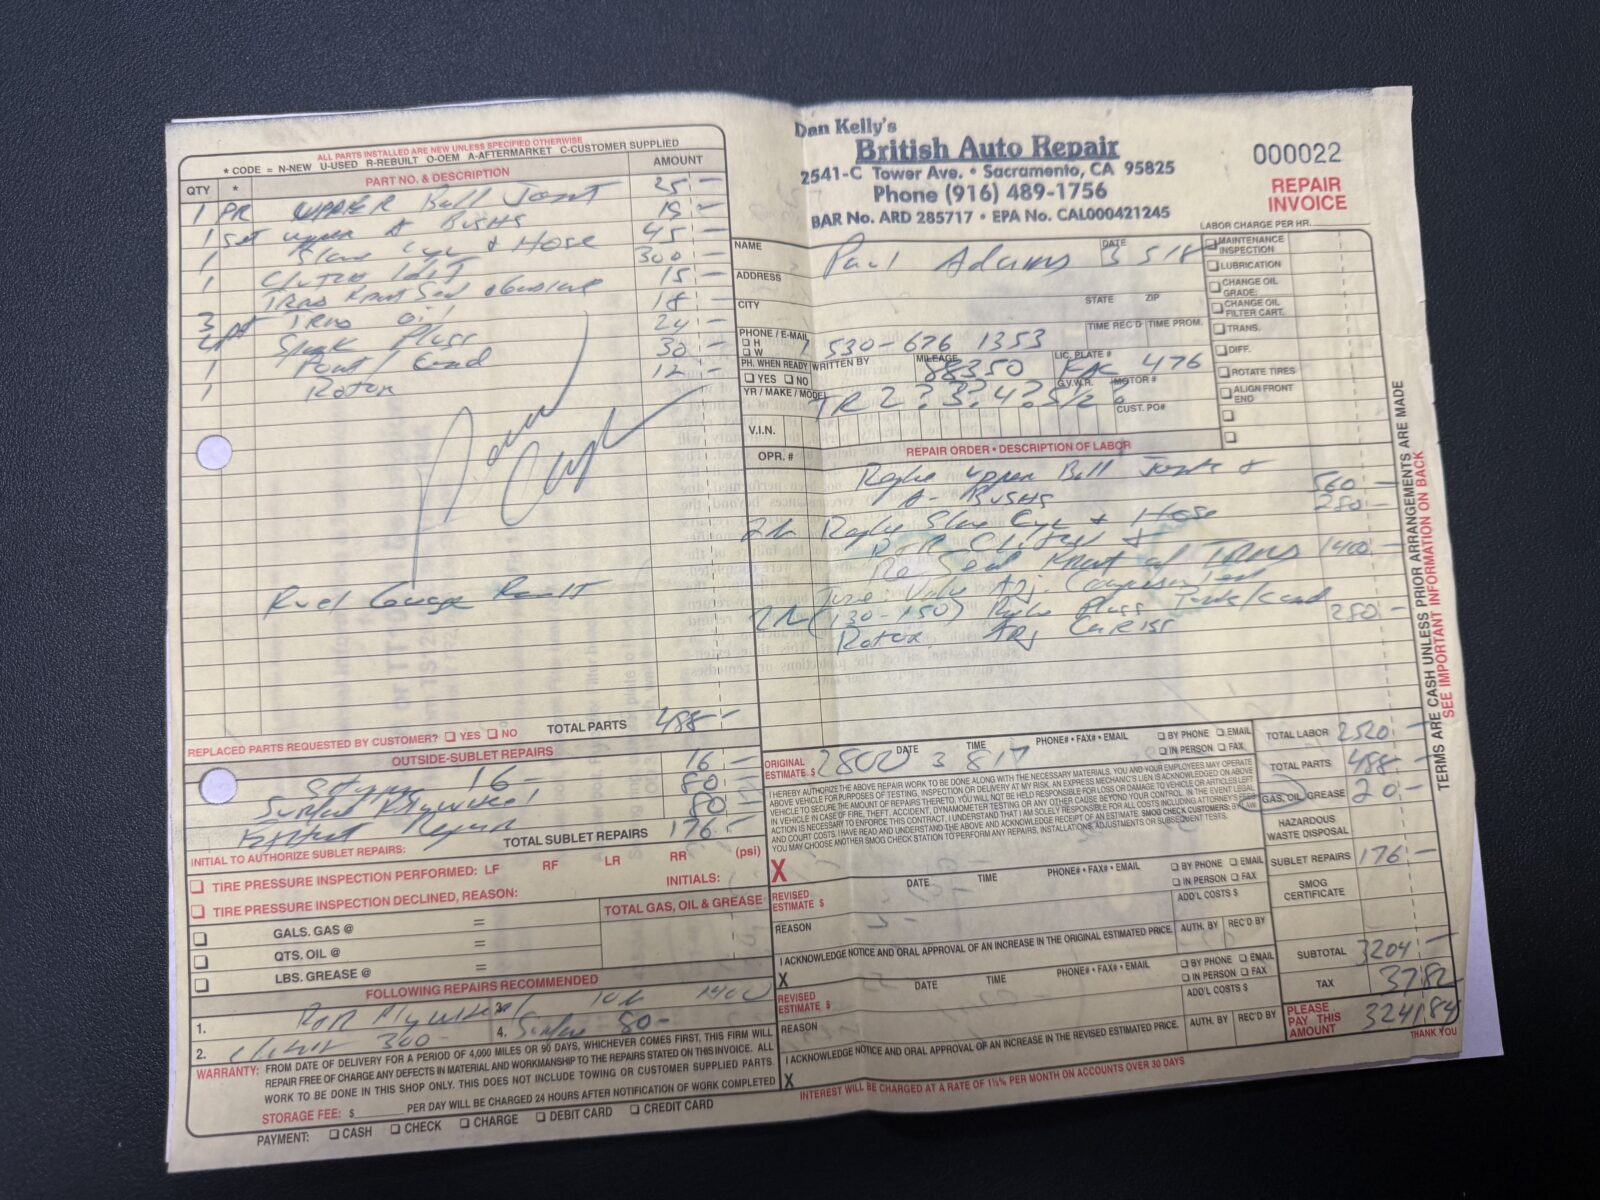 Dan Kelly's
British Auto Repair
2541-C Tower Ave. • Sacramento, CA 95825
Phone (916) 489-1756
BAR No. ARD 285717 • EPA No. CAL000421245
000022
REPAIR
INVOICE
ALL PARTS INSTALLED ARE NEW UNLESS SPECIFIED OTHERWISE
* CODE = N-NEW U-USED R-REBUILT O-OEM A-AFTERMARKET C-CUSTOMER SUPPLIED
QTY * PART NO. & DESCRIPTION AMOUNT
1 PR UPPER Ball Joint 25 -
1 Set upper A Bushs 15 -
1 Slave Cyl & Hose 45 -
1 Clutch 300 -
Trans Front Seal 15 -
3 Trans oil 18 -
Spark Plugs 24 -
1 Point / Cond 30 -
1 Rotor 12 -
TOTAL PARTS 488 -
REPLACED PARTS REQUESTED BY CUSTOMER? YES NO
OUTSIDE-SUBLET REPAIRS
16 - 16 -
Surface Flywheel 80 -
Exhaust Repair 80 -
TOTAL SUBLET REPAIRS 176 -
INITIAL TO AUTHORIZE SUBLET REPAIRS:
TIRE PRESSURE INSPECTION PERFORMED: LF RF LR RR (psi)
TIRE PRESSURE INSPECTION DECLINED, REASON: INITIALS:
TOTAL GAS, OIL & GREASE
GALS. GAS @ =
QTS. OIL @ =
LBS. GREASE @ =
FOLLOWING REPAIRS RECOMMENDED
1. R&R Flywheel 3. 1400
2. Clutch 300 - 4. Surface 80 -
WARRANTY: FROM DATE OF DELIVERY FOR A PERIOD OF 4,000 MILES OR 90 DAYS, WHICHEVER COMES FIRST, THIS FIRM WILL
REPAIR FREE OF CHARGE ANY DEFECTS IN MATERIAL AND WORKMANSHIP TO THE REPAIRS STATED ON THIS INVOICE. ALL
WORK TO BE DONE IN THIS SHOP ONLY. THIS DOES NOT INCLUDE TOWING OR CUSTOMER SUPPLIED PARTS.
STORAGE FEE: $ PER DAY WILL BE CHARGED 24 HOURS AFTER NOTIFICATION OF WORK COMPLETED
PAYMENT: CASH CHECK CHARGE DEBIT CARD CREDIT CARD
LABOR CHARGE PER HR.
NAME Paul Adams DATE 3 5/8
ADDRESS
CITY STATE ZIP
PHONE / E-MAIL H W 530-676 1353 TIME REC'D TIME PROM.
PH. WHEN READY YES NO WRITTEN BY MILEAGE 88350 LIC. PLATE # 476
YR / MAKE / MODEL TR 2? 3? 4? 5/2? G.V.W.R. MOTOR #
V.I.N. CUST. PO#
MAINTENANCE INSPECTION
LUBRICATION
CHANGE OIL GRADE:
CHANGE OIL FILTER CART.
TRANS.
DIFF.
ROTATE TIRES
ALIGN FRONT END
OPR. # REPAIR ORDER • DESCRIPTION OF LABOR
Upper Ball Joints & 560 -
A - Bushs 280 -
Slave Cyl & Hose
R&R Clutch &
Re Seal Front of Trans 1400 -
Tune: Valve Adj. Compression test
(130-150) Plugs Points/cond 280 -
Rotor Adj
TERMS ARE CASH UNLESS PRIOR ARRANGEMENTS ARE MADE
SEE IMPORTANT INFORMATION ON BACK
ORIGINAL ESTIMATE $ 2800 DATE 3 8 17 TIME PHONE# • FAX# • EMAIL BY PHONE EMAIL IN PERSON FAX
I HEREBY AUTHORIZE THE ABOVE REPAIR WORK TO BE DONE ALONG WITH THE NECESSARY MATERIALS. YOU AND YOUR EMPLOYEES MAY OPERATE
ABOVE VEHICLE FOR PURPOSES OF TESTING, INSPECTION OR DELIVERY AT MY RISK. AN EXPRESS MECHANIC'S LIEN IS ACKNOWLEDGED ON ABOVE
VEHICLE TO SECURE THE AMOUNT OF REPAIRS THERETO. YOU WILL NOT BE HELD RESPONSIBLE FOR LOSS OR DAMAGE TO VEHICLE OR ARTICLES LEFT
IN VEHICLE IN CASE OF FIRE, THEFT, ACCIDENT, DYNAMOMETER TESTING OR ANY OTHER CAUSE BEYOND YOUR CONTROL. IN THE EVENT LEGAL
ACTION IS NECESSARY TO ENFORCE THIS CONTRACT, I UNDERSTAND THAT I AM SOLELY RESPONSIBLE FOR ALL COSTS INCLUDING ATTORNEY'S FEES
AND COURT COSTS. I HAVE READ AND UNDERSTAND THE ABOVE AND ACKNOWLEDGE RECEIPT OF AN ESTIMATE. SMOG CHECK CUSTOMERS: BY LAW
YOU MAY CHOOSE ANOTHER SMOG CHECK STATION TO PERFORM ANY REPAIRS, INSTALLATIONS, ADJUSTMENTS OR SUBSEQUENT TESTS.
X
REVISED ESTIMATE $ DATE TIME PHONE# • FAX# • EMAIL BY PHONE EMAIL IN PERSON FAX
REASON ADD'L COSTS $
AUTH. BY REC'D BY
I ACKNOWLEDGE NOTICE AND ORAL APPROVAL OF AN INCREASE IN THE ORIGINAL ESTIMATED PRICE.
X
REVISED ESTIMATE $ DATE TIME PHONE# • FAX# • EMAIL BY PHONE EMAIL IN PERSON FAX
REASON ADD'L COSTS $
AUTH. BY REC'D BY
I ACKNOWLEDGE NOTICE AND ORAL APPROVAL OF AN INCREASE IN THE REVISED ESTIMATED PRICE.
X
INTEREST WILL BE CHARGED AT A RATE OF 1½% PER MONTH ON ACCOUNTS OVER 30 DAYS
TOTAL LABOR 2520 -
TOTAL PARTS 488 -
GAS, OIL, GREASE 20 -
HAZARDOUS WASTE DISPOSAL
SUBLET REPAIRS 176 -
SMOG CERTIFICATE
SUBTOTAL 3204 -
TAX 37 82
PLEASE PAY THIS AMOUNT 3241 84
THANK YOU